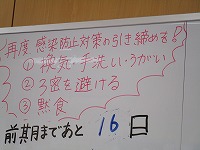 再度 感染防止対策の引き締めを!
①換気・手洗い・うがい
②3密を避ける
③黙食
前期末まであと 16 日